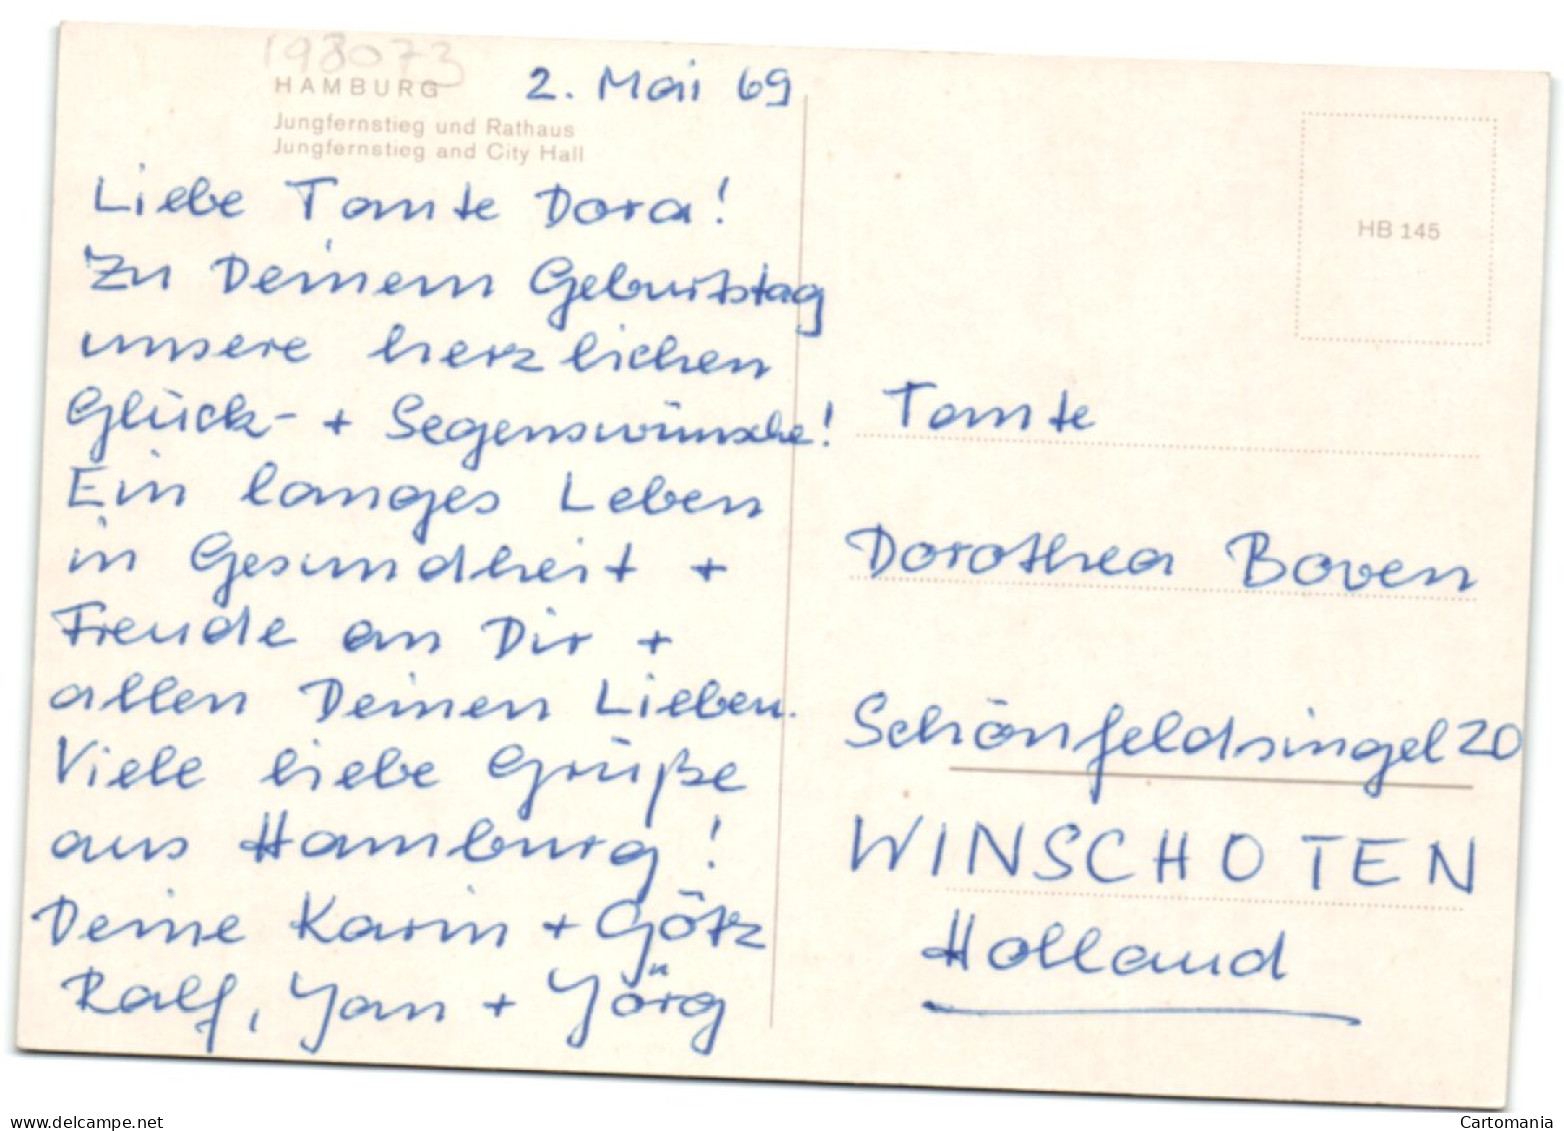 198073
HAMBURG
2. Mai 69
Jungfernstieg und Rathaus
Jungfernstieg and City Hall
Liebe Tante Dora!
Zu Deinem Geburtstag
unsere herzlichen
Glück- + Segenswünsche!
Ein langes Leben
in Gesundheit +
Freude an Dir +
allen Deinen Lieben.
Viele liebe Grüße
aus Hamburg!
Deine Karin + Götz
Ralf, Yan + Yörg
HB 145
Tante
Dorothea Boven
Schönfeldsingel 20
WINSCHOTEN
Holland
www.delcampe.net
Cartomania